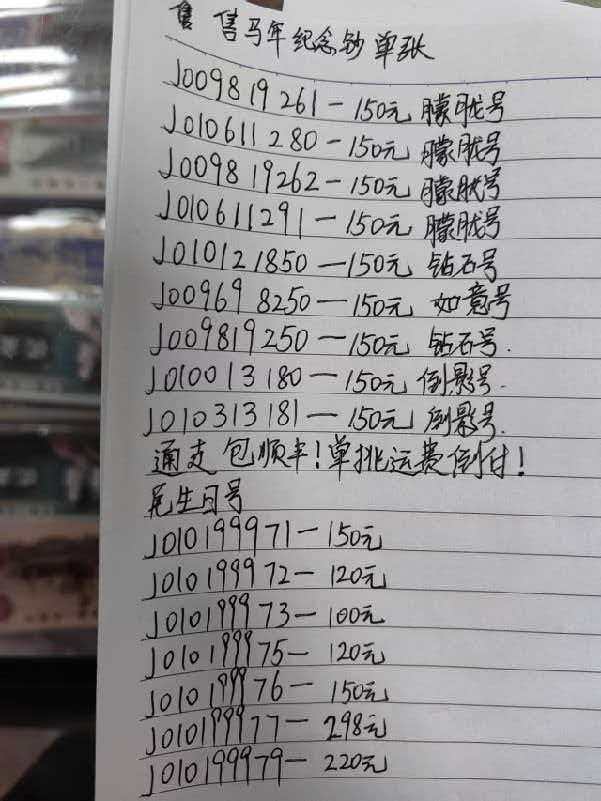 售 售马年纪念钞单张
J009819261-150元 朦胧号
J010611280-150元 朦胧号
J009819262-150元 朦胧号
J010611291-150元 朦胧号
J010121850-150元 钻石号
J009698250-150元 如意号
J009819250-150元 钻石号.
J010013180-150元 倒影号.
J010313181-150元 倒影号.
通走包顺丰!单挑运费倒付!
尾生日号
J010199971-150元
J010199972-120元
J010199973-100元
J010199975-120元
J010199976-150元
J010199977-298元
J010199979-220元